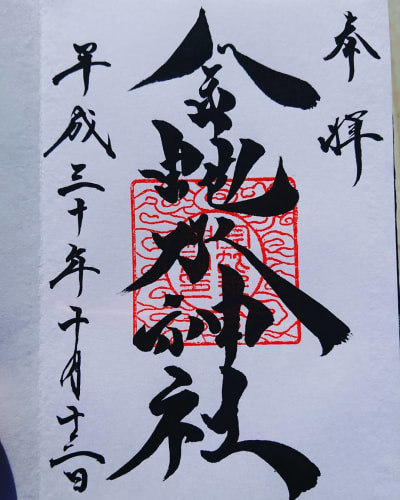 奉拝
金蛇水神社
平成三十年十月十三日